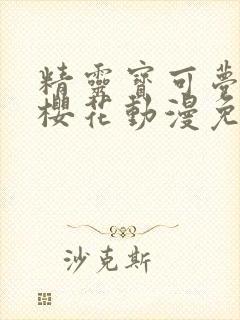 精靈寶可夢
櫻花動漫免
沙克斯